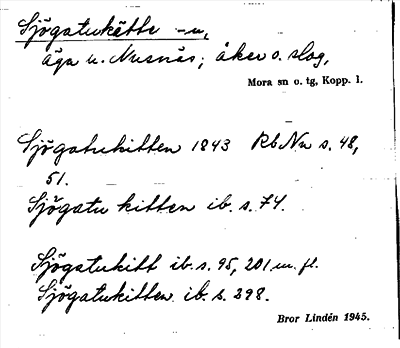 Sjögatukätte -n,
äga u. Nusnäs; åker o. slog,
Mora sn o. tg, Kopp. l.
Sjögatukitten 1843 Rb Nu s. 48,
51.
Sjögatu kitten ib. s. 74.
Sjögatukitt ib. s. 95, 201 m. fl.
Sjögatukitten ib. s. 398.
Bror Lindén 1945.